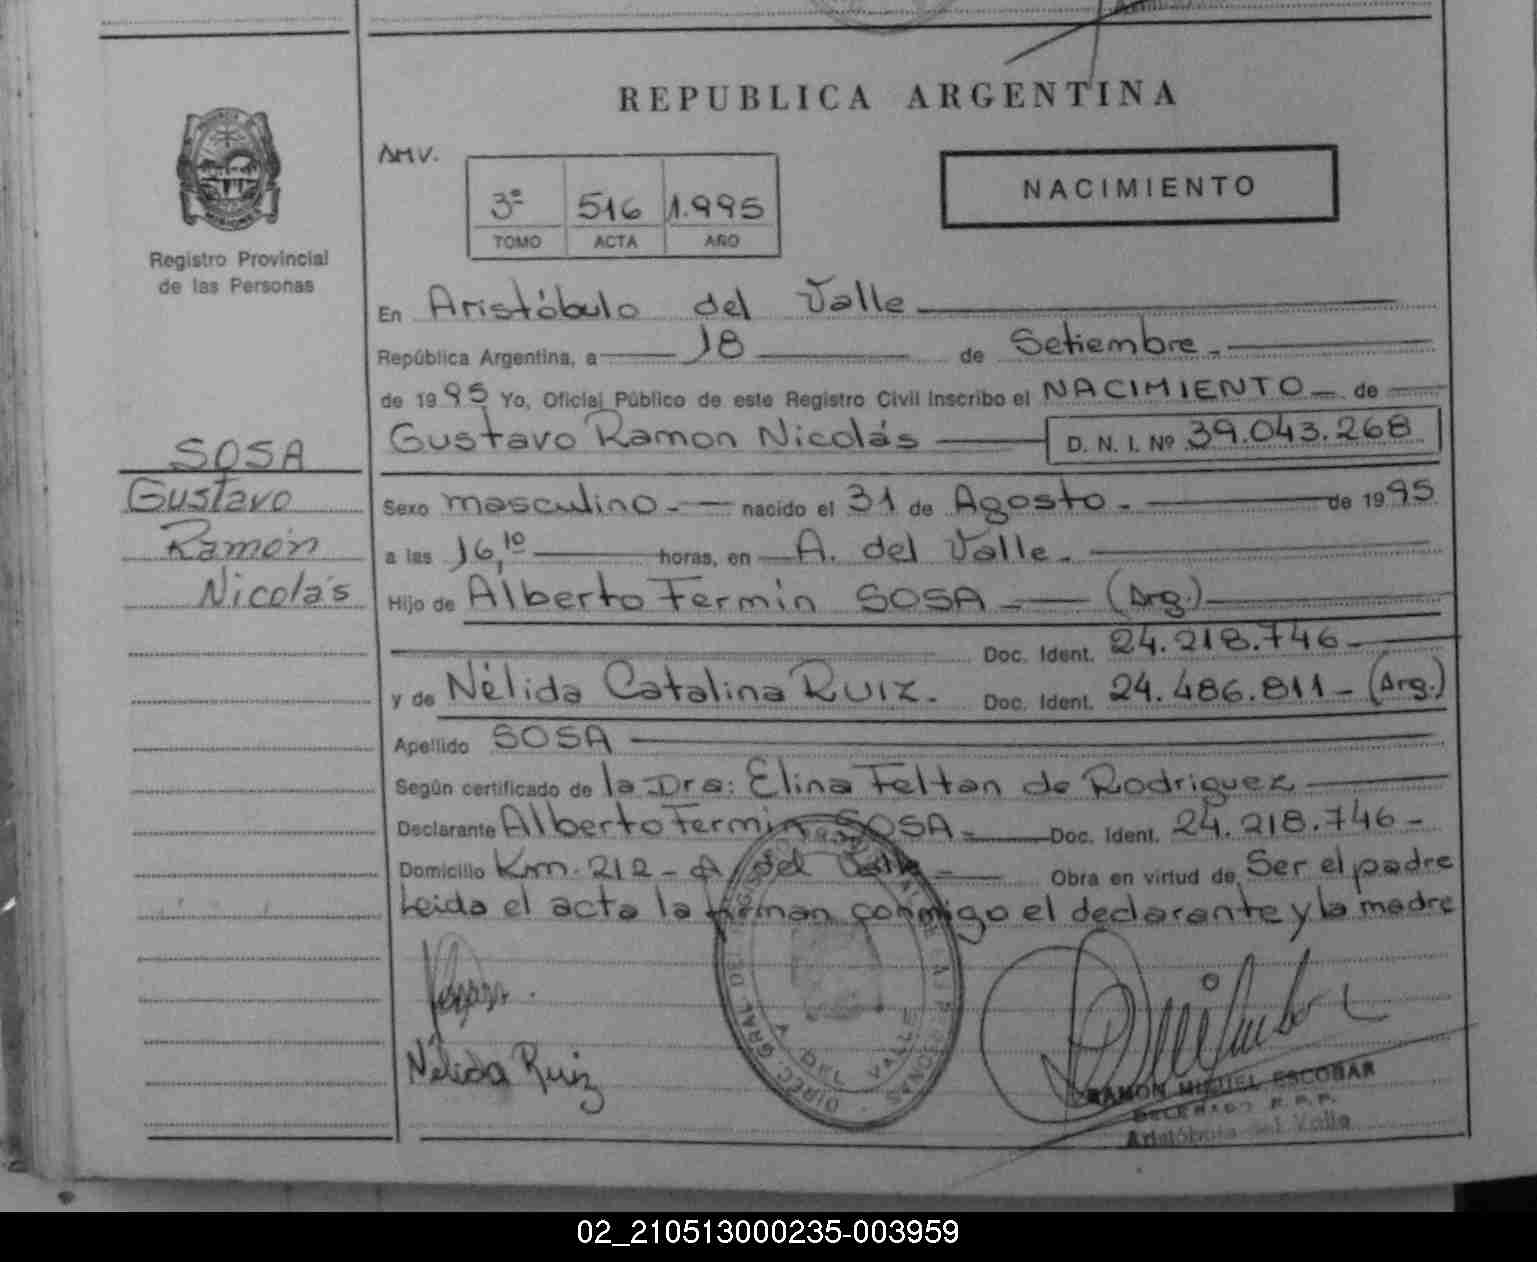 REPUBLICA ARGENTINA
AMV.
3º 516 1.995
TOMO ACTA AÑO
NACIMIENTO
Registro Provincial
de las Personas
SOSA
Gustavo
Ramón
Nicolás
En Aristóbulo del Valle
República Argentina, a 18 de Setiembre.
de 1995 Yo, Oficial Público de este Registro Civil inscribo el NACIMIENTO de
Gustavo Ramon Nicolás D. N. I. Nº 39.043.268
Sexo masculino. nacido el 31 de Agosto. de 1995
a las 16,10 horas, en A. del Valle.
Hijo de Alberto Fermin SOSA (Arg.)
Doc. Ident. 24.218.746
y de Nélida Catalina RUIZ. Doc. Ident. 24.486.811 - (Arg.)
Apellido SOSA
Según certificado de la Dra: Elina Feltan de Rodriguez
Declarante Alberto Fermin SOSA Doc. Ident. 24.218.746 -
Domicilio Km. 212 - A del Valle Obra en virtud de Ser el padre
Leida el acta la firman conmigo el declarante y la madre
Nélida Ruiz
DIREC. GRAL. DE PERSONAS
A. DEL VALLE
RAMON MIGUEL ESCOBAR
DELEGADO R.P.P.
Aristóbulo del Valle
02_210513000235-003959